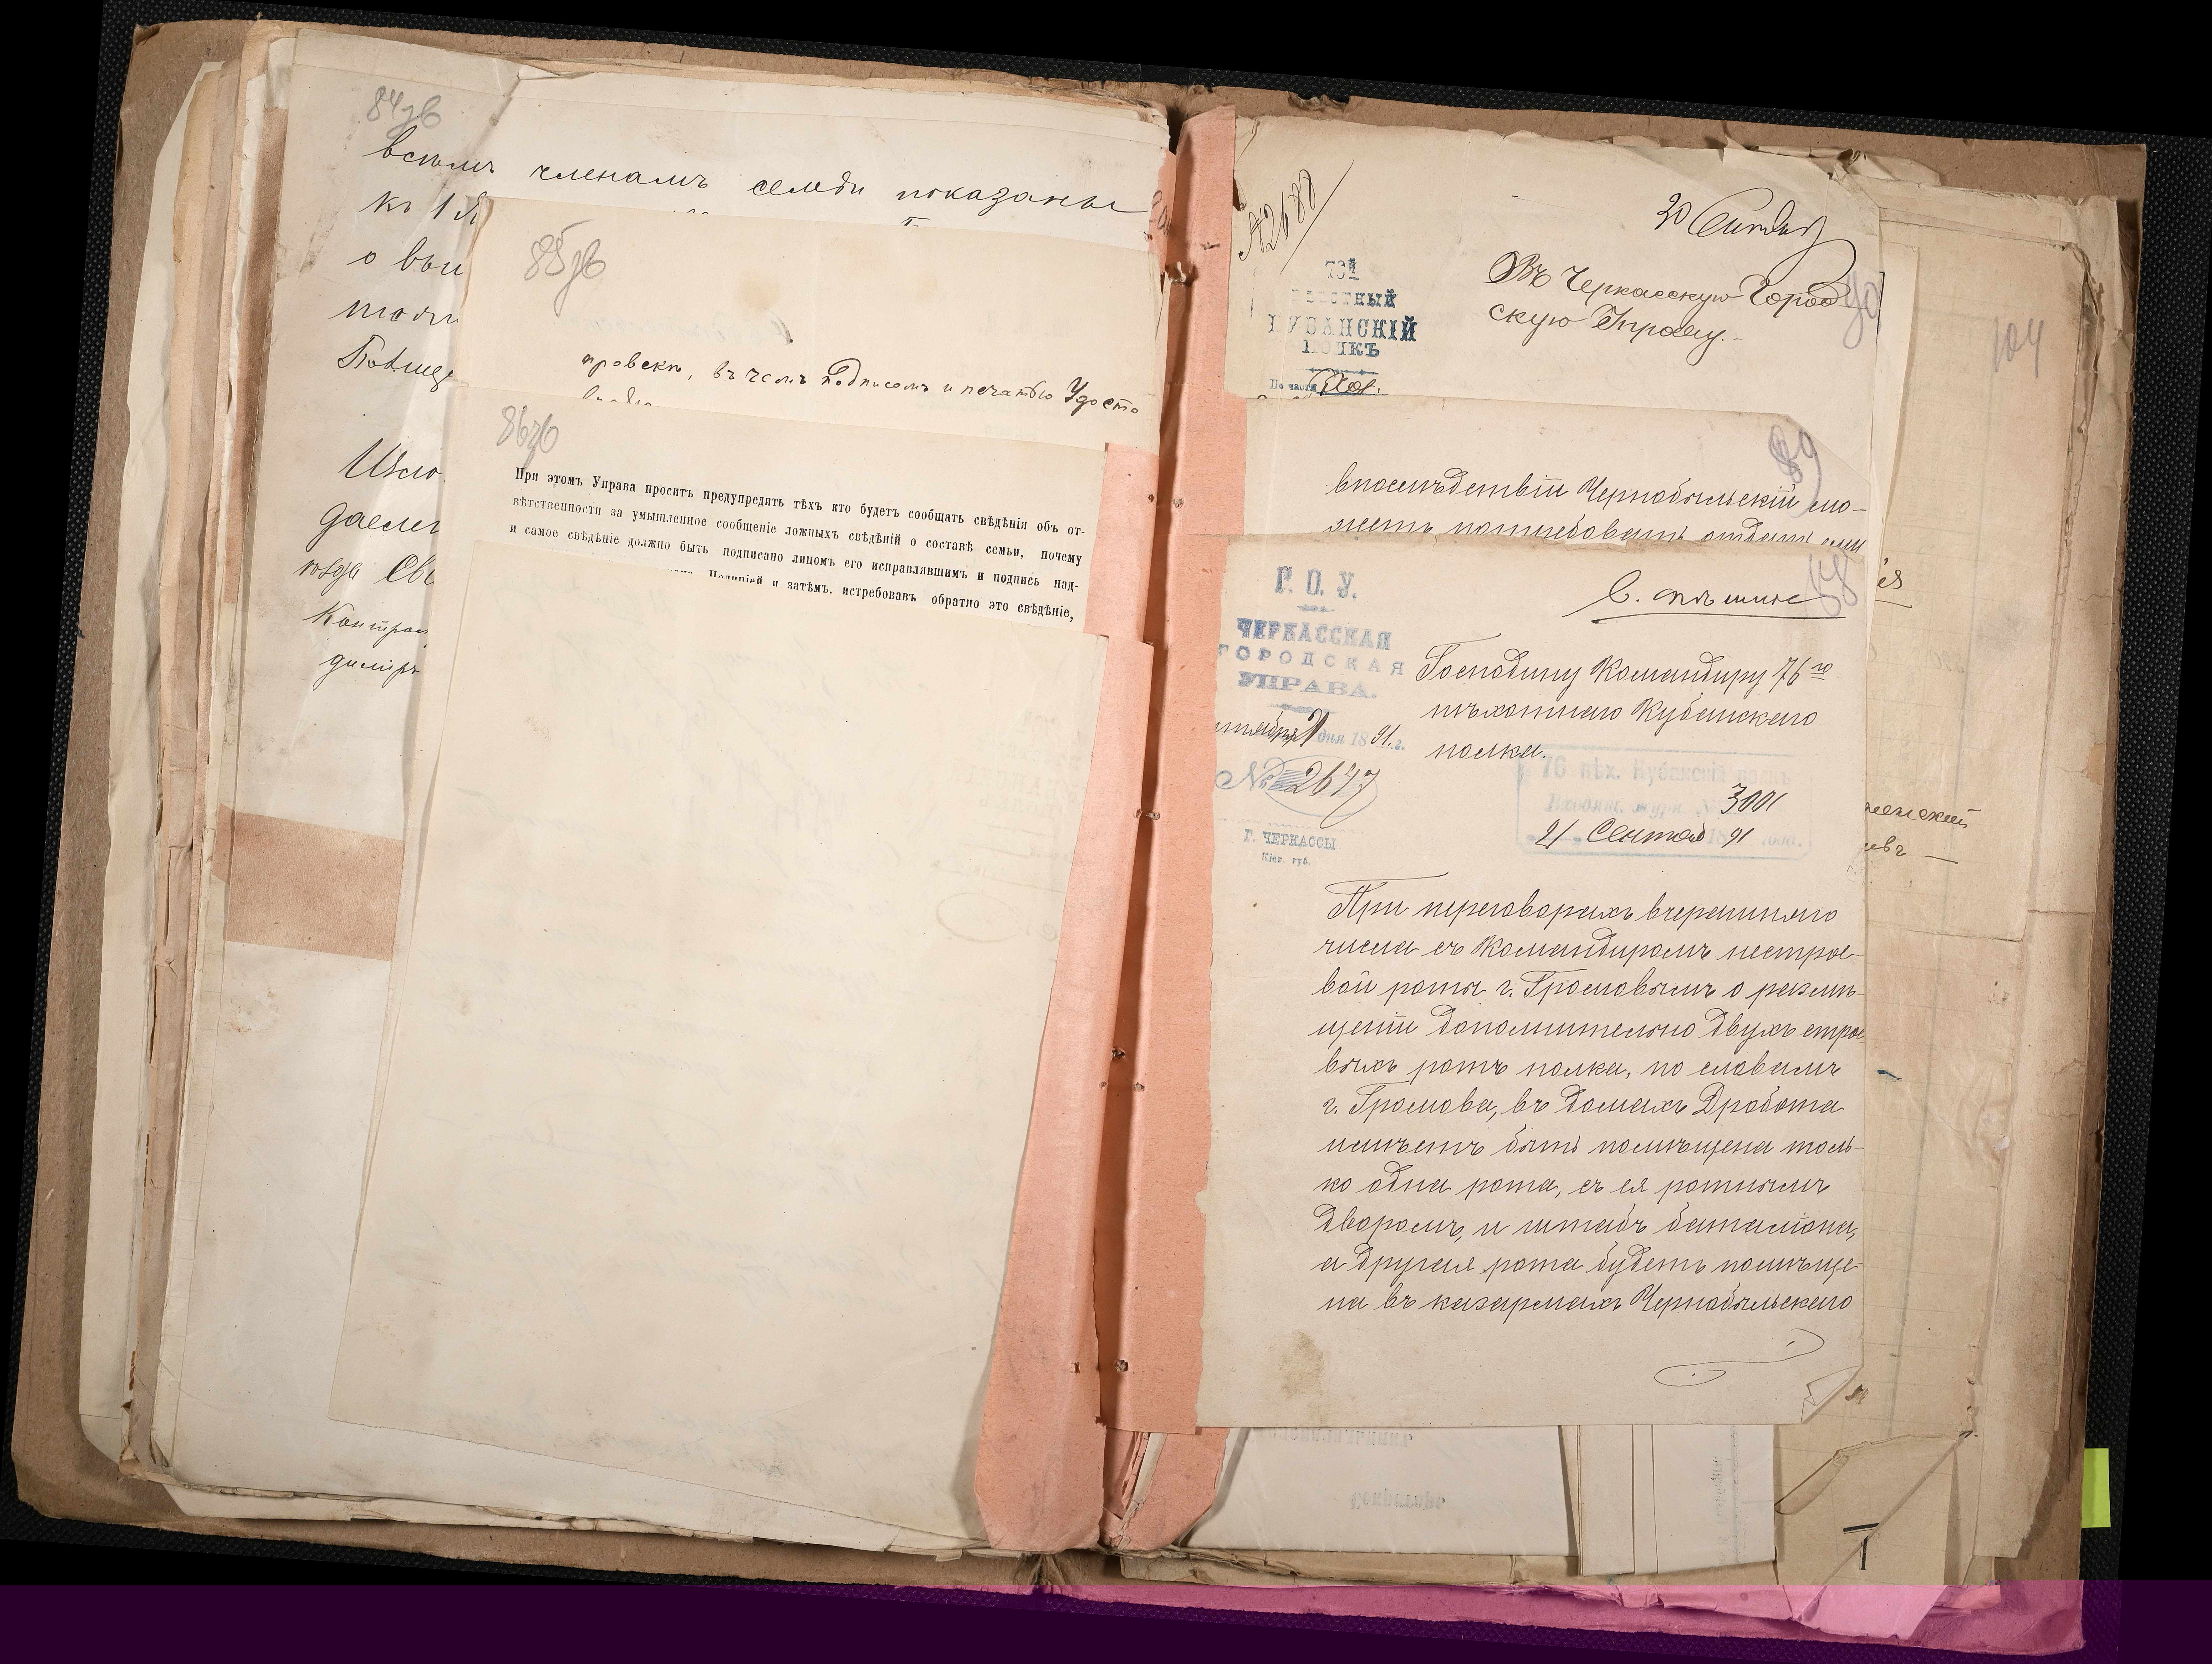 84зв
всѣмъ членамъ семьи показаны
къ 1 Я
о вы
85зв
провски, въ чемъ подписомъ и печатью Удосто
86зв
При этомъ Управа проситъ предупредить тѣхъ кто будетъ сообщать свѣдѣнія объ от-
вѣтственности за умышленное сообщеніе ложныхъ свѣдѣній о составѣ семьи, почему
и самое свѣдѣніе должно быть подписано лицомъ его исправлявшимъ и подпись над-
Полиціей и затѣмъ, истребовавъ обратно это свѣдѣніе,
№2688
20 Сентября
Въ Черкасскую Город
скую Управу.
КУБАНСКІЙ
ПОЛКЪ
По части Хоз.
90
104
89
впослѣдствіи Чернобыльскій мо-
жетъ потребовать отдать ему
88
В. спѣшно
Г. О. У.
ЧЕРКАССКАЯ
ГОРОДСКАЯ
УПРАВА.
дня 1891 г.
№ 2647
Г. ЧЕРКАССЫ
Кіев. губ.
Господину Командиру 76го
пѣхотнаго Кубанскаго
полка.
76 пѣх. Кубанскій полкъ
3001
21 Сентяб 1891 года.
При переговорахъ вчерашняго
числа съ Командиромъ нестрое-
вой роты г. Громовымъ о размѣ-
щеніи дополнительно двухъ строе
выхъ ротъ полка, по словамъ
г. Громова, въ домахъ Дробота
имѣетъ быть помѣщена толь-
ко одна рота, съ ея ротнымъ
дворомъ, и штабъ баталіона,
а другая рота будетъ помѣще-
на въ казармахъ Чернобыльскаго